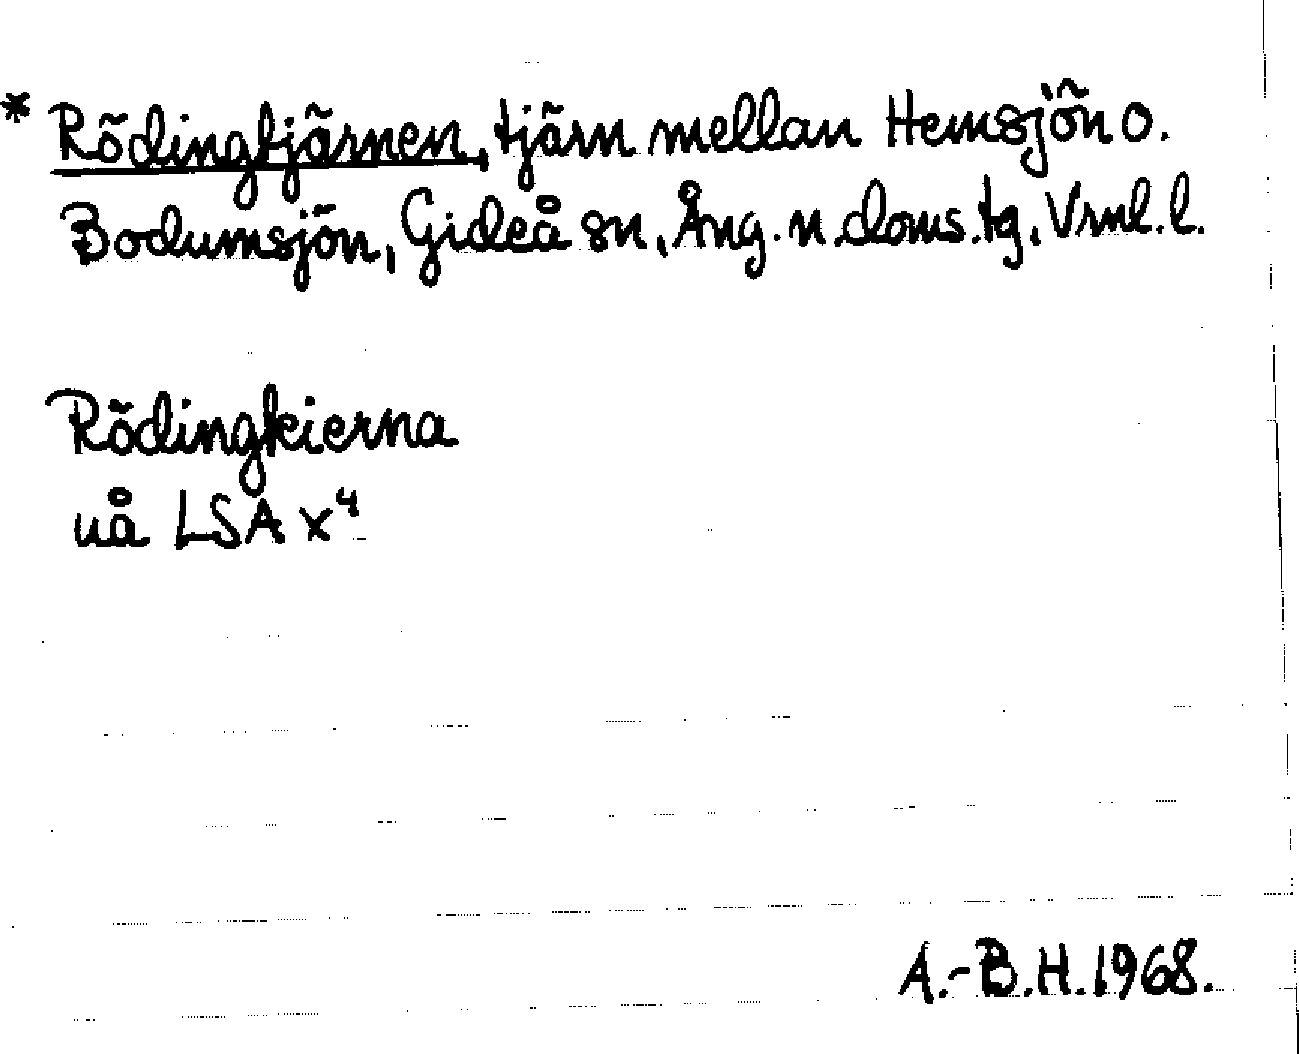 * Rödingtjärnen, tjärn mellan Hemsjön o.
Bodumsjön, Gideå sn, Ång. n. doms.tg, Vrnl. l.
Rödingkierna
uå LSA X⁴
A.-B.H. 1968.